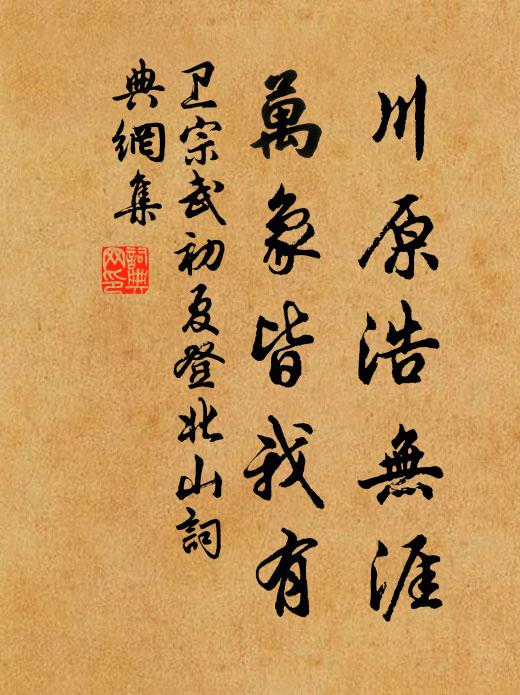 川原浩無涯
萬象皆我有
卫宗武初夏登北山詞
典網集
詞典
网印